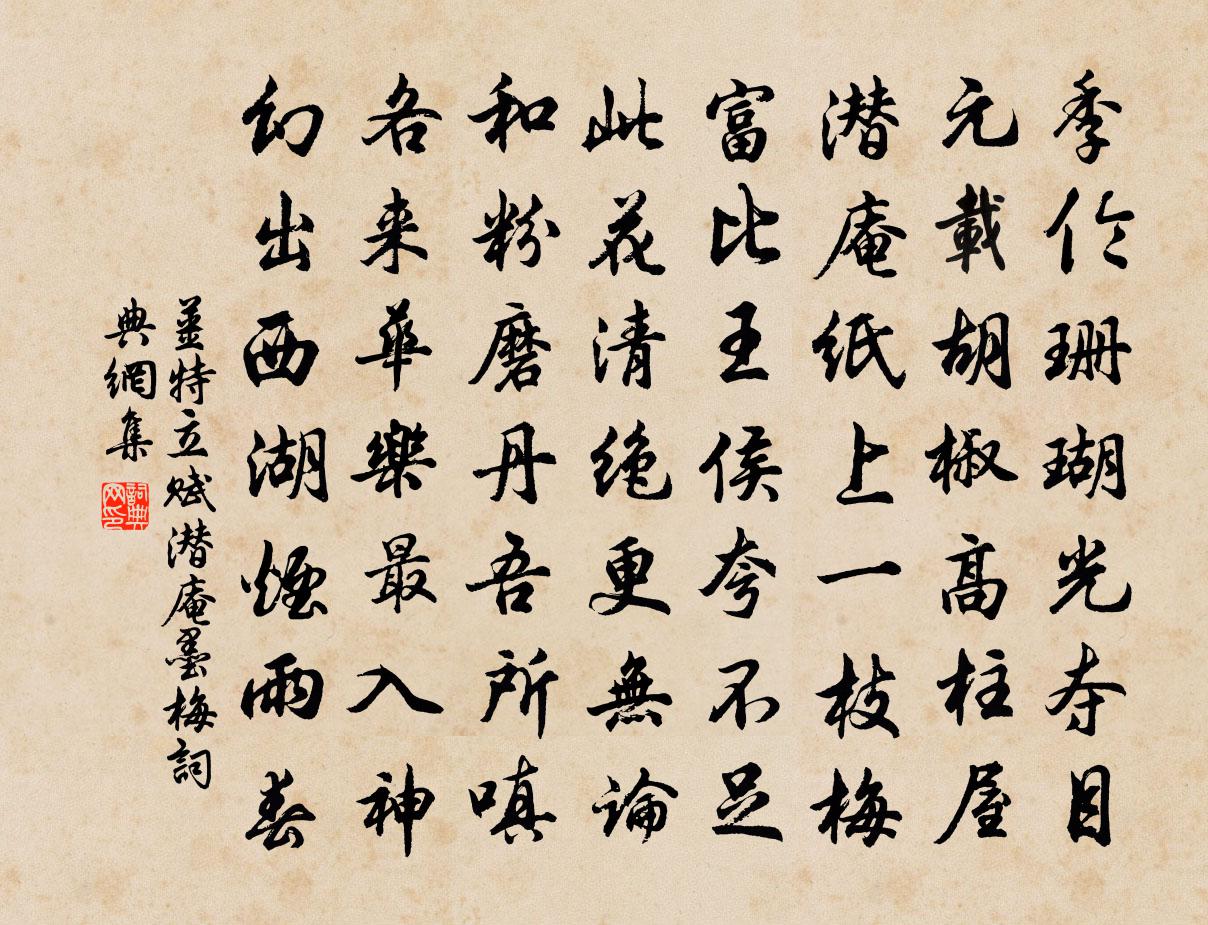 季伦珊瑚光夺目
元載胡椒高柱屋
潜庵纸上一枝梅
富比王侯夸不足
此花清绝更無論
和粉磨丹吾所嗔
各来華樂最入神
幻出西湖煙雨春
姜特立赋潜庵墨梅詞
典網集
詞典网印